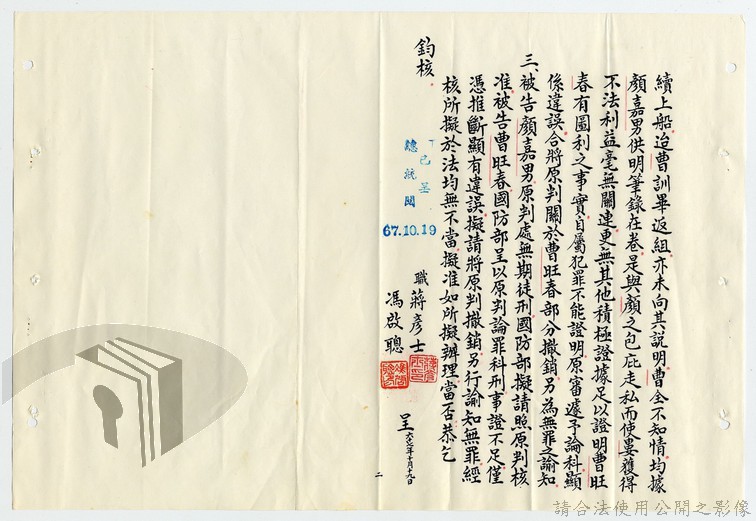 續上船迨曹訓畢返組亦未向其說明曹全不知情均據
顏嘉男供明筆錄在卷是與顏之包庇走私而使晏獲得
不法利益毫無關連更無其他積極證據足以證明曹旺
春有圖利之事實自屬犯罪不能證明原審遽予論科顯
係違誤合將原判關於曹旺春部分撤銷另為無罪之諭知
三、被告顏嘉男原判處無期徒刑國防部擬請照原判核
准被告曹旺春國防部呈以原判論罪科刑事證不足僅
憑推斷顯有違誤擬請將原判撤銷另行諭知無罪經
核所擬於法均無不當擬准如所擬辦理當否恭乞
鈞核
職 蔣彥士
馮啟聰
呈 六七年十月十九日
已呈
總統閱
67.10.19
二
請合法使用公開之影像